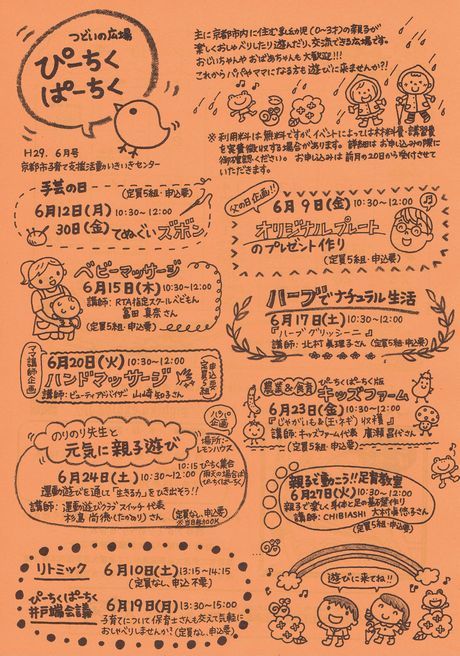 つどいの広場
ぴーちく
ぱーちく
H29. 6月号
京都市子育て支援活動いきいきセンター
主に京都市内に住む乳幼児(0〜3才)の親子が
楽しくおしゃべりしたり遊んだり、交流できる広場です。
おじいちゃんやおばあちゃんも大歓迎!!!
これからパパやママになる方も遊びに来ませんか?!
※利用料は無料ですが、イベントによっては材料費・講習費
を実費徴収する場合があります。詳細はお申し込みの際に
御確認ください。 お申し込みは前月の20日から受付させて
いただきます。
手芸の日
(定員5組・申込要)
6月12日(月) 10:30〜12:00
30日(金) てぬぐいズボン
父の日企画!!
6月9日(金) 10:30〜12:00
オリジナルプレート
のプレゼント作り
(定員5組・申込要)
ベビーマッサージ
6月15日(木) 10:30〜12:00
講師: RTA指定スクールべびもん
冨田 真奈さん
(定員5組・申込要)
ハーブでナチュラル生活
6月17日(土) 10:30〜12:00
『ハーブグリッシーニ』
講師: 北村 美理子さん (定員5組・申込要)
ママ講師企画
6月20日(火) 10:30〜12:00
ハンドマッサージ
講師: ビューティアドバイザー 山崎 知子さん
(定員5組・申込要)
農業&食育
ぴーちくぱーちく版
キッズファーム
6月23日(金) 10:30〜12:00
『じゃがいも&玉ネギ収穫』
講師: キッズファーム代表 廣瀬 昌代さん
(定員5組・申込要)
パパ企画
のりのり先生と
元気に親子遊び
場所:
レモンハウス
6月24日(土) 10:30〜12:00
10:15 ぴちく集合
(雨天の場合はぴちくぱーちく)
運動遊びを通して「生きる力」をひき出そう!!
講師: 運動遊びクラブスイッチ 代表
杉島 尚徳(たかのり)さん
(定員なし、申込要)
※当日参加OK
親子で動こう!! 足育教室
6月27日(火) 10:30〜12:00
親子で楽しく身体と足の基礎作り
講師: CHIBIASHI 大村 眞悠子さん
(定員5組・申込要)
リトミック
6月10日(土) 13:15〜14:15
(定員なし、申込不要)
ぴーちくぱーちく
井戸端会議
6月19日(月) 13:30〜15:00
子育てについて保育士さんも交えて気軽に
おしゃべりしませんか?(定員なし、申込要)
遊びに来てね!!